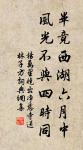 畢竟西湖六月中
風光不與四時同
楊萬里曉出净慈寺送
林子方詞典網集